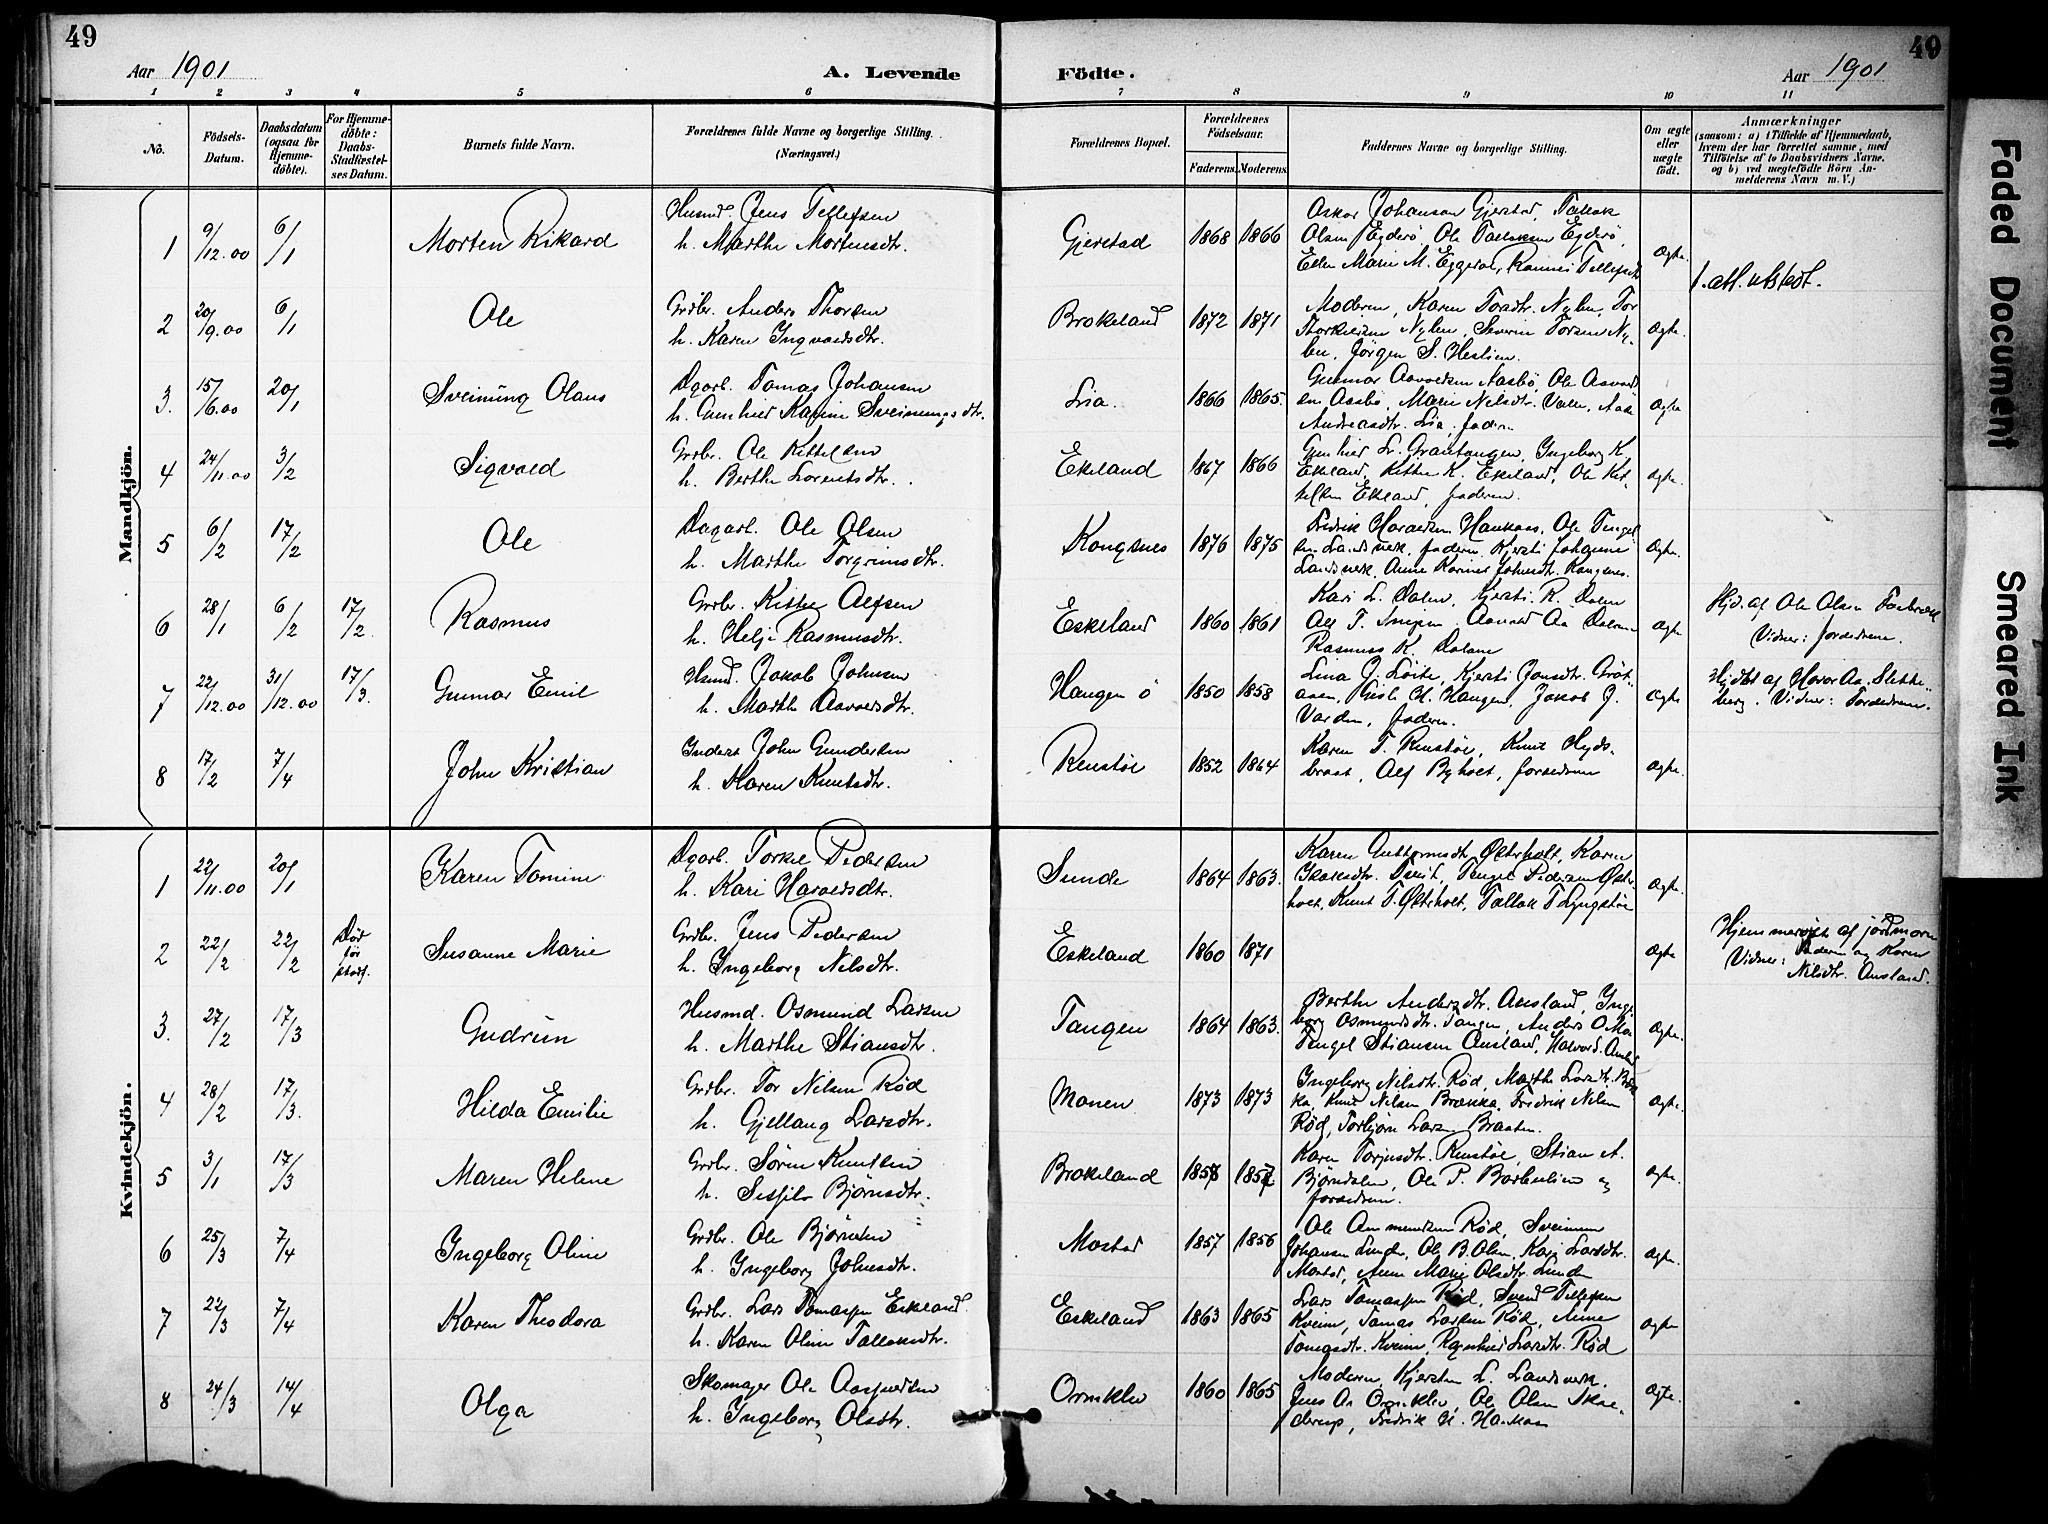 49
49
Aar 1901
A. Levende
Födte.
Aar 1901
1 2 3 4 5 6 7 8 9 10 11
No.
Födsels-Datum.
Daabsdatum (ogsaa for Hjemme-döbte).
For Hjemme-döbte: Daabs-Stadfæstel-ses Datum.
Barnets fulde Navn.
Forældrenes fulde Navne og borgerlige Stilling.
(Næringsvei.)
Forældrenes Bopæl.
Forældrenes Födselsaar.
Faderens. Moderens.
Faddernes Navne og borgerlige Stilling.
Om ægte eller uægte födt.
Anmærkninger
(saasom: a) i Tilfælde af Hjemmedaab,
hvem der har forrettet samme, med
Tilföielse af to Daabsvidners Navne.
og b) ved uægtefödte Börn An-
melderens Navn m. V.)
Mandkjön.
1 9/12.00 6/1 Morten Rikard
Husmd. Jens Tellefsen
h. Marthe Mortensdtr.
Gjerstad 1868 1866
Oskar Johansen Gjerstad, Tallak
Olsen Egderö, Ole Tallaksen Egderö,
Ellen Marie M. Eggerö, Tellefsdtr.
Ægte.
1. att. utstedt.
2 20/9.00 6/1 Ole
Grdbr. Anders Thorsen
h. Karen Ingvaldsdtr.
Brokeland 1872 1871
Moderen, Karen Torsdtr. Nylen, Tor
Torkildsen Nylen, Severin Torsen Ny-
len, Jörgen S. Hestlien.
Ægte.
3. 15/6.00 20/1 Sveinung Olaus
Dgarb. Tomas Johansen
h. Gunhild Karine Sveinungsdtr.
Lia. 1866 1865.
Gunnar Aavoldsen Aasbö, Ole Aavold
sen Aasbö, Marie Nilsdtr. Valle, Aase
Andreasdtr. Lia, faderen
Ægte
4 24/11.00 3/2 Sigvald
Grdbr. Ole Kittelsen
h. Berthe Lorentsdtr.
Ekeland 1867 1866
Gunhild L. Grantangen, Ingeborg K.
Ekeland, Kittel K. Ekeland, Ole Kit-
telsen Ekeland, faderen.
Ægte.
5 6/2 17/2 Ole
Dagarb. Ole Olsen
h. Marthe Torgrimsdtr.
Kongsnes 1876 1875
Fredrik Haraldsen Haukaas, Ole Tengel
sen Landsverk, faderen, Kjersti Johanne
Landsverk, Anne Karine Johnsdtr. Kongsnes.
Ægte.
6 28/1 6/2 17/2. Rasmus
Grdbr. Kittel Alfsen
h. Helje Rasmusdtr.
Eskeland 1860 1861
Kari L. Dalen, Kjersti K. Dalen
Alf T. Aanold Aa Dalen
Rasmus K. Dalen
Ægte
Hjd. af Ole Olsen
Vidner: forældrene.
7 22/12.00 31/12.00 17/3. Gunnar Emil
Husmd. Jakob Johnsen
h. Marthe Aavoldsdtr.
Haugen ö 1850 1858
Lina J. Löite, Kjersti Jonsdtr. Gröt-
aaen, Gusli H. Haugen, Jakob J.
Varden, faderen.
Ægte
Hjdbt af Havor Aa. Slette-
berg. Vidner: Forældrene.
8 17/2 7/4 John Kristian
Inderst John Gundersen
h. Karen Knutsdtr.
Renstöl 1852 1864
Karen T. Renstöl, Knut Hyds-
braat, Alf Byholt, forældrene
Ægte.
Kvindekjön.
1 22/11.00 20/1 Karen Tomine
Dgarb. Torkel Pedersen
h. Kari Haraldsdtr.
Sunde 1864 1863.
Karen Guttormsdtr. Østerholt, Karen
Isaksdtr. Tengel Pedersen Øster-
holt, Knut T. Østerholt, Tallak T. Lyngstöl
Ægte.
2 22/2 22/2 Död för stadf. Susanne Marie
Grdbr. Jens Pedersen
h. Ingeborg Nilsdtr.
Eskeland 1860 1871
Ægte
Hjemmedöbt af jordmoren
Vidner: Faderen og Karen
Nilsdtr. Ausland.
3. 27/2 17/3 Gudrun
Husmd. Osmund Larsen
h. Marthe Stiansdtr.
Tangen 1864 1863.
Berthe Andersdtr. Ausland, Inge-
borg Osmundsdtr. Tangen, Anders O. Moe
Tengel Stiansen Ausland, Halvord.
Ægte.
4 28/2 17/3. Hilda Emilie
Grdbr. Tor Nilsen Röd
h. Gjellaug Larsdtr.
Monen 1873 1873
Ingeborg Nilsdtr. Röd, Marthe Larsdtr. Bræk-
ka, Knut Nilsen Brækka, Fredrik Nilsen
Röd, Torbjörn Larsen Braaten.
Ægte.
5 3/1 17/3 Maren Helene
Grdbr. Sören Knutsen
h. Sissjel Björnsdtr.
Brokeland 1858 1857
Karen Torjusdtr. Renstöl, Stian A.
Björndalen, Ole P. Barlindlien og
forældrene.
Ægte.
6 25/3 7/4 Ingeborg Oline
Grdbr. Ole Björnsen
h. Ingeborg Johnsdtr.
Mostad 1857 1856
Ole Ammundsen Röd, Sveinum
Johansen Lunden, Ole B. Olsen, Kari Larsdtr.
Mostad, Anne Marie Olsdtr. Lunden
Ægte.
7 22/3 7/4 Karen Theodora
Grdbr. Lars Tomassen Eskeland
h. Karen Oline Tallaksdtr.
Eskeland 1863 1865
Lars Tomassen Röd, Svend Tellefsen
Kveim, Tomas Larsen Röd, Anne
Tomasdtr. Kveim, Ragnhild Larsdtr. Röd
Ægte
8 24/3 14/4 Olga
Skomager Ole Aasmundsen
h. Ingeborg Olsdtr.
Ormklev 1860 1865
Moderen, Kjersten L. Landsverk,
Jens A. Ormklev, Ole Olsen Skae-
derup, Fredrik H. Haukaas
Ægte.
Faded Document
Smeared Ink